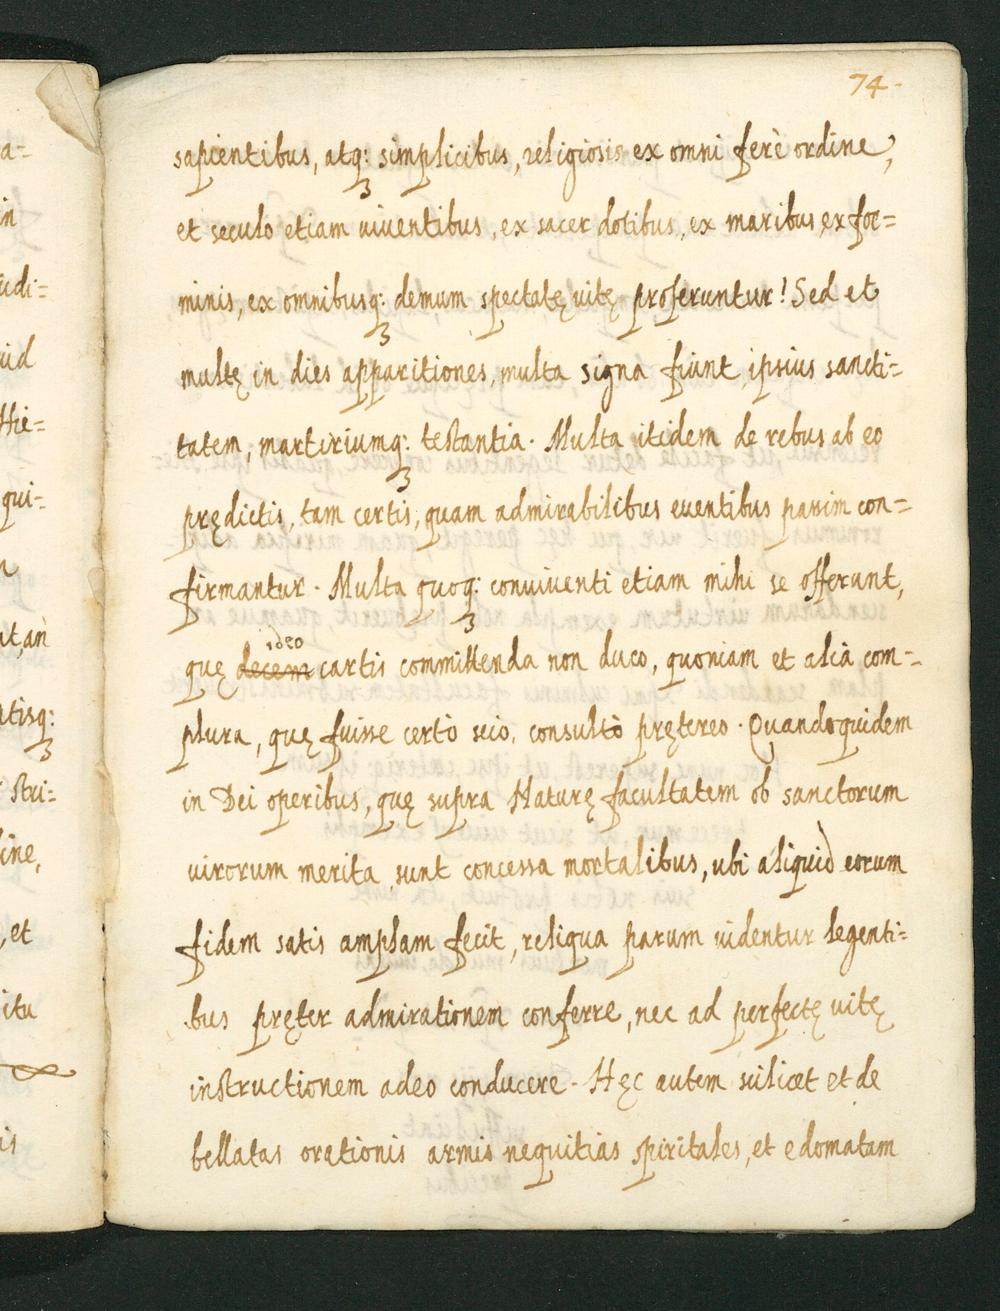 74.
sapientibus, atq: simplicibus, religiosis ex omni ferè ordine,
et seculo etiam uiuentibus, ex sacerdotibus, ex maribus, ex foe=
minis, ex omnibusq: demum spectatę uitę proferuntur! Sed et
multę in dies apparitiones, multa signa fiunt ipsius sancti=
tatem, martiriumq: testantia. Multa itidem de rebus ab eo
prędictis, tam certis, quam admirabilibus euentibus passim con=
firmantur. Multa quoq: conuiuenti etiam mihi se offerunt,
ideo
quę decem cartis committenda non duco, quoniam et alia com=
plura, quę fuisse certò scio, consultò prętereo. Quandoquidem
in Dei operibus, quę supra Naturę facultatem ob sanctorum
uirorum merita sunt concessa mortalibus, ubi aliquid eorum
fidem satis amplam fecit, reliqua parum uidentur legenti=
bus pręter admirationem conferre, nec ad perfectę uitę
instructionem adeo conducere. Hęc autem scilicet et de
bellatas orationis armis nequitias spiritales, et edomatam
a=
in
udi=
uid
Hie=
qui=
at, an
atisq:
stri=
ine,
, et
itu
is